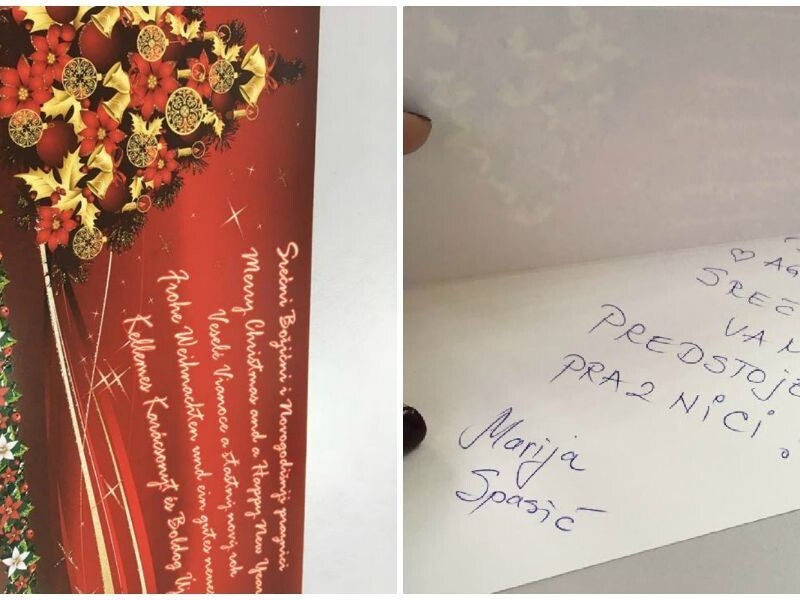 Srećni Božićni i Novogodišnji praznici
Merry Christmas and a Happy New Year
Veselé Vianoce a šťastný nový rok
Frohe Weihnachten und ein gutes neues
Kellemes Karácsonyt és Boldog Új
♡ AG
SREĆ
VAM
PREDSTOJE
PRAZNICI.
Marija
Spasić